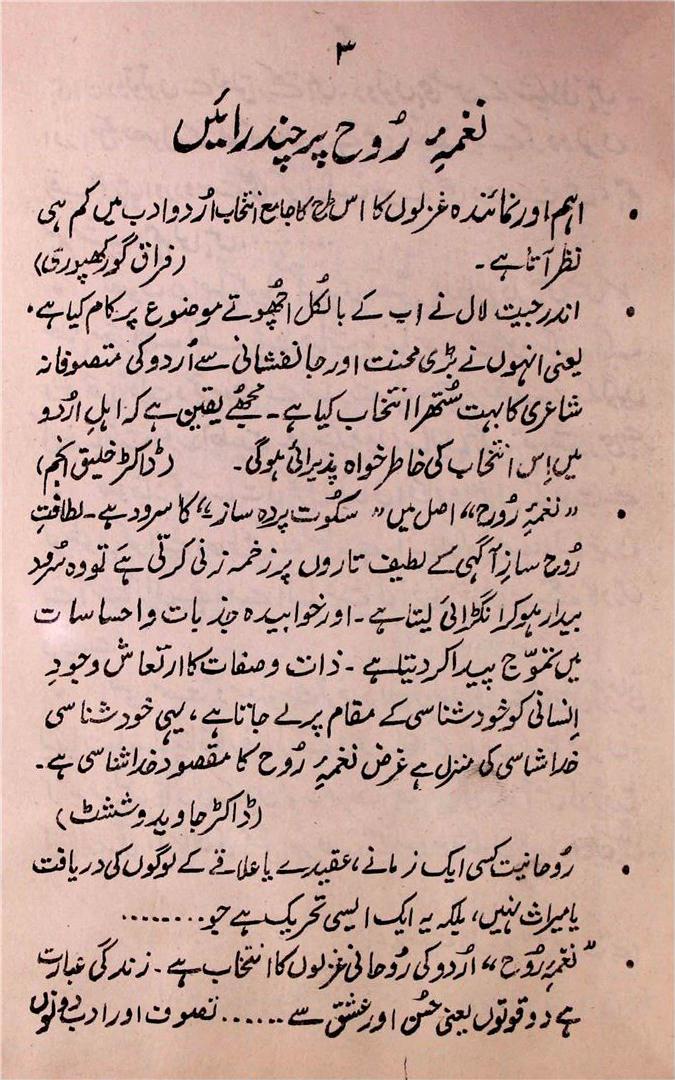 ۳
نغمۂ رُوح پر چند رائیں
• اہم اور نمائندہ غزلوں کا اس طرح کا جامع انتخاب اُردو ادب میں کم ہی
نظر آتا ہے۔ (فراق گورکھپوری)
• اندر جیت لال نے اب کے بالکُل اچھُوتے موضوع پر کام کیا ہے۔
یعنی انہوں نے بڑی محنت اور جانفشانی سے اُردو کی متصوفانہ
شاعری کا بہت سُتھرا انتخاب کیا ہے۔ مجھے یقین ہے کہ اہلِ اُردو
میں اِس انتخاب کی خاطر خواہ پذیرائی ہوگی۔ (ڈاکٹر خلیق انجم)
• ”نغمۂ رُورح“ اصل میں ”سکُوت پردہ ساز“ کا سرود ہے۔ لطافتِ
رُوح سازِ آگہی کے لطیف تاروں پر زخمہ زنی کرتی ہے تو وہ سُرود
بیدار ہوکر انگڑائی لیتا ہے۔ اور خوابیدہ جذبات و احساسات
میں تموّج پیدا کر دیتا ہے۔ ذات و صفات کا ارتعاش وجودِ
اِنسانی کو خود شناسی کے مقام پر لے جاتا ہے، یہی خود شناسی
خدا شاسی کی منزل ہے غرض نغمۂ رُوح کا مقصود خدا شناسی ہے۔
(ڈاکٹر جاوید وششٹ)
• رُوحانیت کسی ایک زمانے، عقیدے یا علاقے کے لوگوں کی دریافت
یا میراث نہیں، بلکہ یہ ایک ایسی تحریک ہے جو........
• ”نغمۂ رُوح“ اُردو کی رُوحانی غزلوں کا انتخاب ہے۔ زندگی عبارت
ہے دو قوتوں یعنی حُسن اور عشق سے...... تصوف اور ادب دونوں